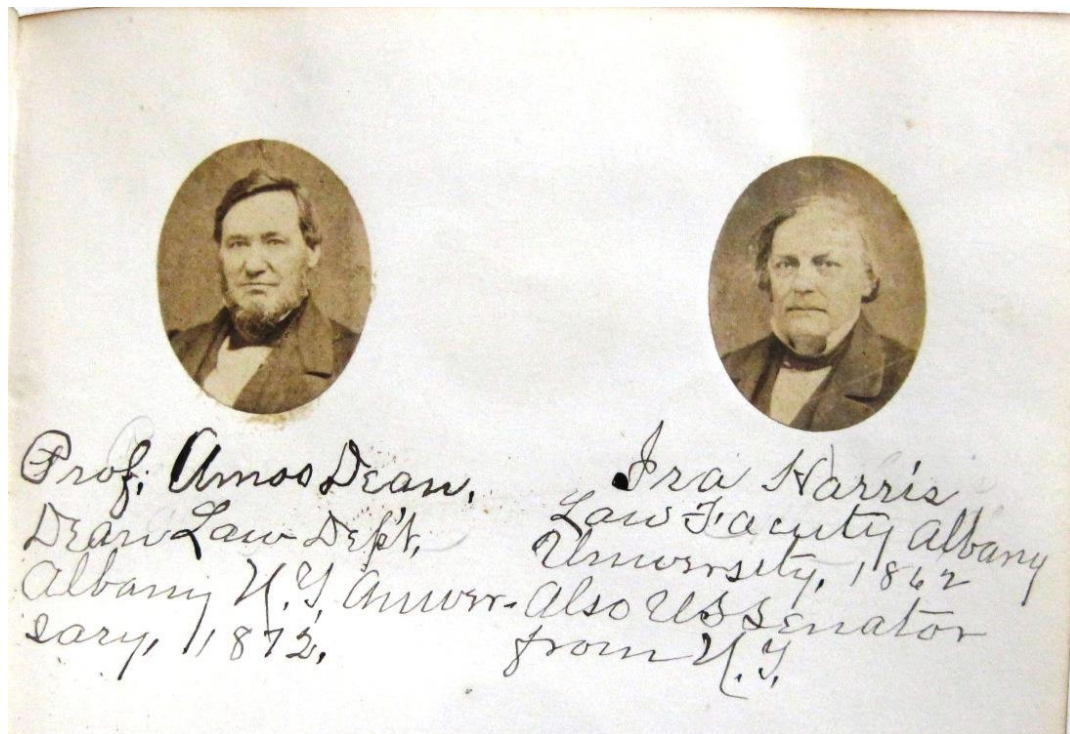 Prof. Amos Dean.
Dean Law Dep't.
Albany N.Y. Anver-
sary, 1872.
Ira Harris
Law Facuty Albany
University, 1862
Also US Senator
from N.Y.